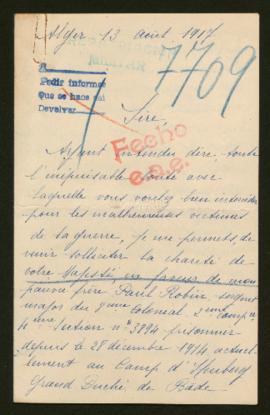 Alger 13 août 1917
REPRESENTACION
MILITAR
7709
A
Pedir informes
Que se haga así
Devolver
Sire,
Fecho
Ayant entendu dire toute
l'inépuisable bonté avec
laquelle vous voulez bien intercéder
pour les malheureuses victimes
de la guerre, je me permets, de
venir solliciter la charité de
votre Majesté en faveur de mon
pauvre frère Paul Robin sergent
major du 8ème Colonial, 2ème Comp
4ème Section n° 3894 prisonnier
depuis le 28 décembre 1914 actuel-
lement au Camp d'
Grand Duché de Bade